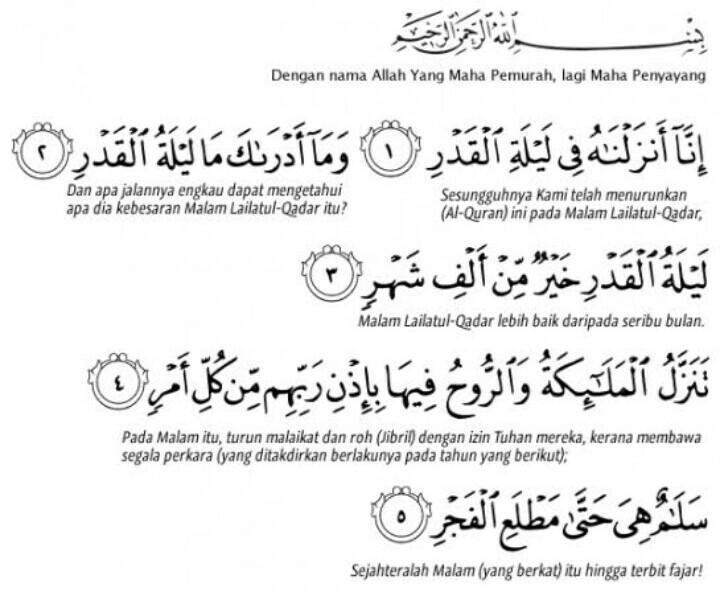 بِسْمِ اللَّهِ الرَّحْمَٰنِ الرَّحِيمِ
Dengan nama Allah Yang Maha Pemurah, lagi Maha Penyayang
إِنَّآ أَنزَلْنَٰهُ فِى لَيْلَةِ ٱلْقَدْرِ ١ وَمَآ أَدْرَىٰكَ مَا لَيْلَةُ ٱلْقَدْرِ ٢
Sesungguhnya Kami telah menurunkan
(Al-Quran) ini pada Malam Lailatul-Qadar,
Dan apa jalannya engkau dapat mengetahui
apa dia kebesaran Malam Lailatul-Qadar itu?
لَيْلَةُ ٱلْقَدْرِ خَيْرٌ مِّنْ أَلْفِ شَهْرٍ ٣
Malam Lailatul-Qadar lebih baik daripada seribu bulan.
تَنَزَّلُ ٱلْمَلَٰٓئِكَةُ وَٱلرُّوحُ فِيهَا بِإِذْنِ رَبِّهِم مِّن كُلِّ أَمْرٍ ٤
Pada Malam itu, turun malaikat dan roh (Jibril) dengan izin Tuhan mereka, kerana membawa
segala perkara (yang ditakdirkan berlakunya pada tahun yang berikut);
سَلَٰمٌ هِىَ حَتَّىٰ مَطْلَعِ ٱلْفَجْرِ ٥
Sejahteralah Malam (yang berkat) itu hingga terbit fajar!